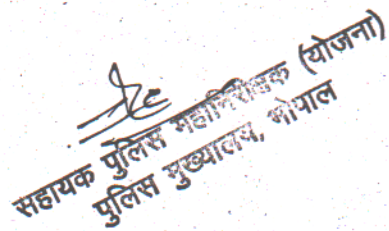 सहायक पुलिस महानिरीक्षक (योजना)
पुलिस मुख्यालय, भोपाल